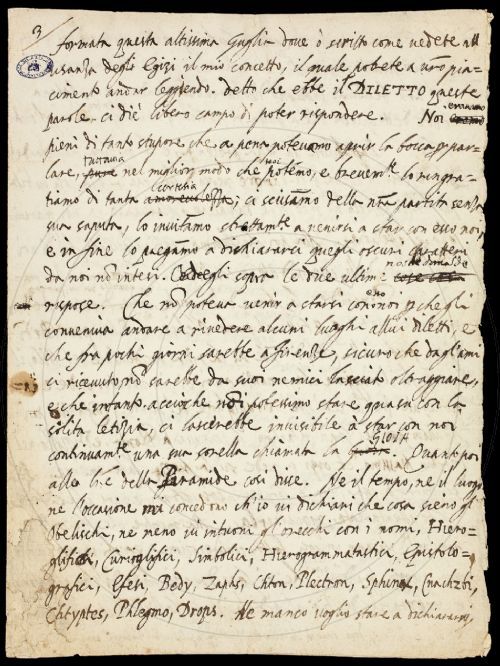 3
formata questa altissima Guglia dove ò scritto come vedete all
usanza degli Egizi il mio concetto, il quale potete a vr̃o pia-
cimento andar leggendo. detto che ebbe il DILETTO queste
parole. ci diè libero campo di poter rispondere. Noi eravamo
pieni di tanto stupore che a pena potevamo aprir la bocca p par-
lare, tuttavia nel miglior modo che potemo, e brevem.te lo ringra-
tiamo di tanta cortesia, ci scusiamo della nr̃a partita senza
sua saputa, lo invitamo strettam.te a venirsi a star con esso noi,
e in fine lo pregamo a dichiararci quegli oscuri caratteri
da noi nõ intesi. Ed egli sopra le due ultime
rispose. Che nõ poteva venir a starsi con esso noi p che gli
conveniva andare a rivedere alcuni luoghi a llui diletti, e
che fra pochi giorni sarebbe a Firenze, sicuro che dagl'ami
ci ricevuto nõ sarebbe da suoi nemici lasciato oltraggiare,
e che intanto. accioche noi potessimo stare quasi con la
solita letizia, ci lascerebbe invisibile a star con noi
continuam.te una sua sorella chiamata la GIOIA. Quant poi
alle tre della Piramide così disse. Ne il tempo, ne il luogo
ne l'occasione mi concedono ch'io vi dichiari che cosa sieno gl
Obelischi, ne meno vi intuoni gl'orecchi con i nomi, Hiero-
glifici, Curioglifici, Simbolici, Hierogrammatistica, Epistolo-
grafici, Efesi Bedy, Zaphs, Chton, Plectron, Sphinx, Cnachzbi,
Chtyptes, Phlegmo, Drops. Ne manco voglio stare a dichiararvi,